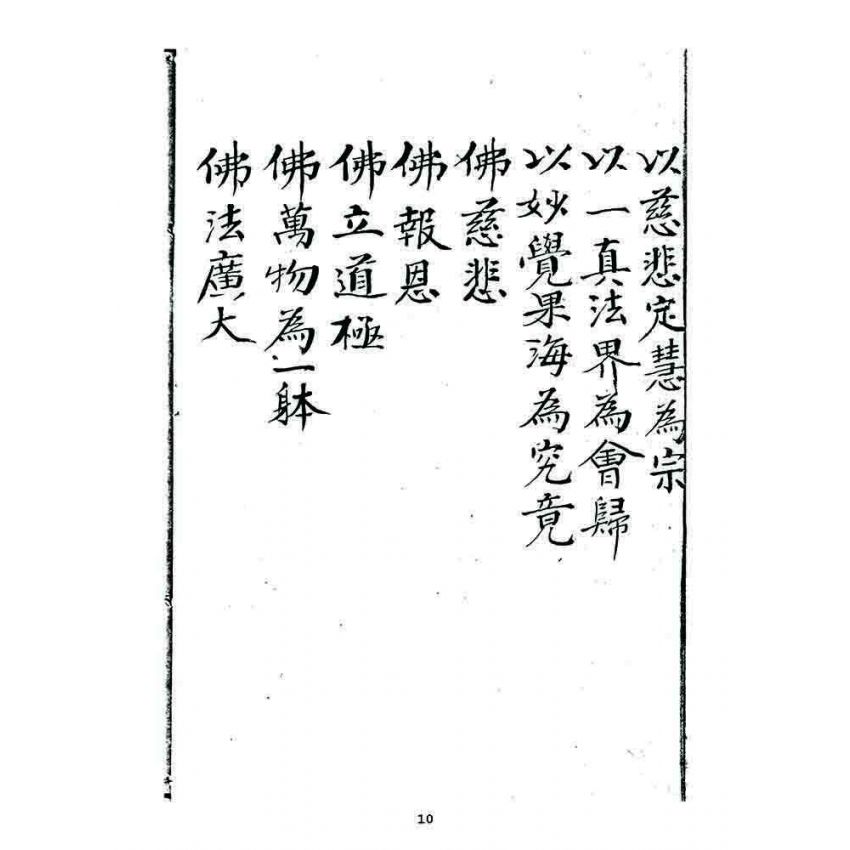 以慈悲定慧為宗
以一真法界為會歸
以妙覺果海為究竟
佛慈悲
佛報恩
佛立道極
佛萬物為一躰
佛法廣大
10